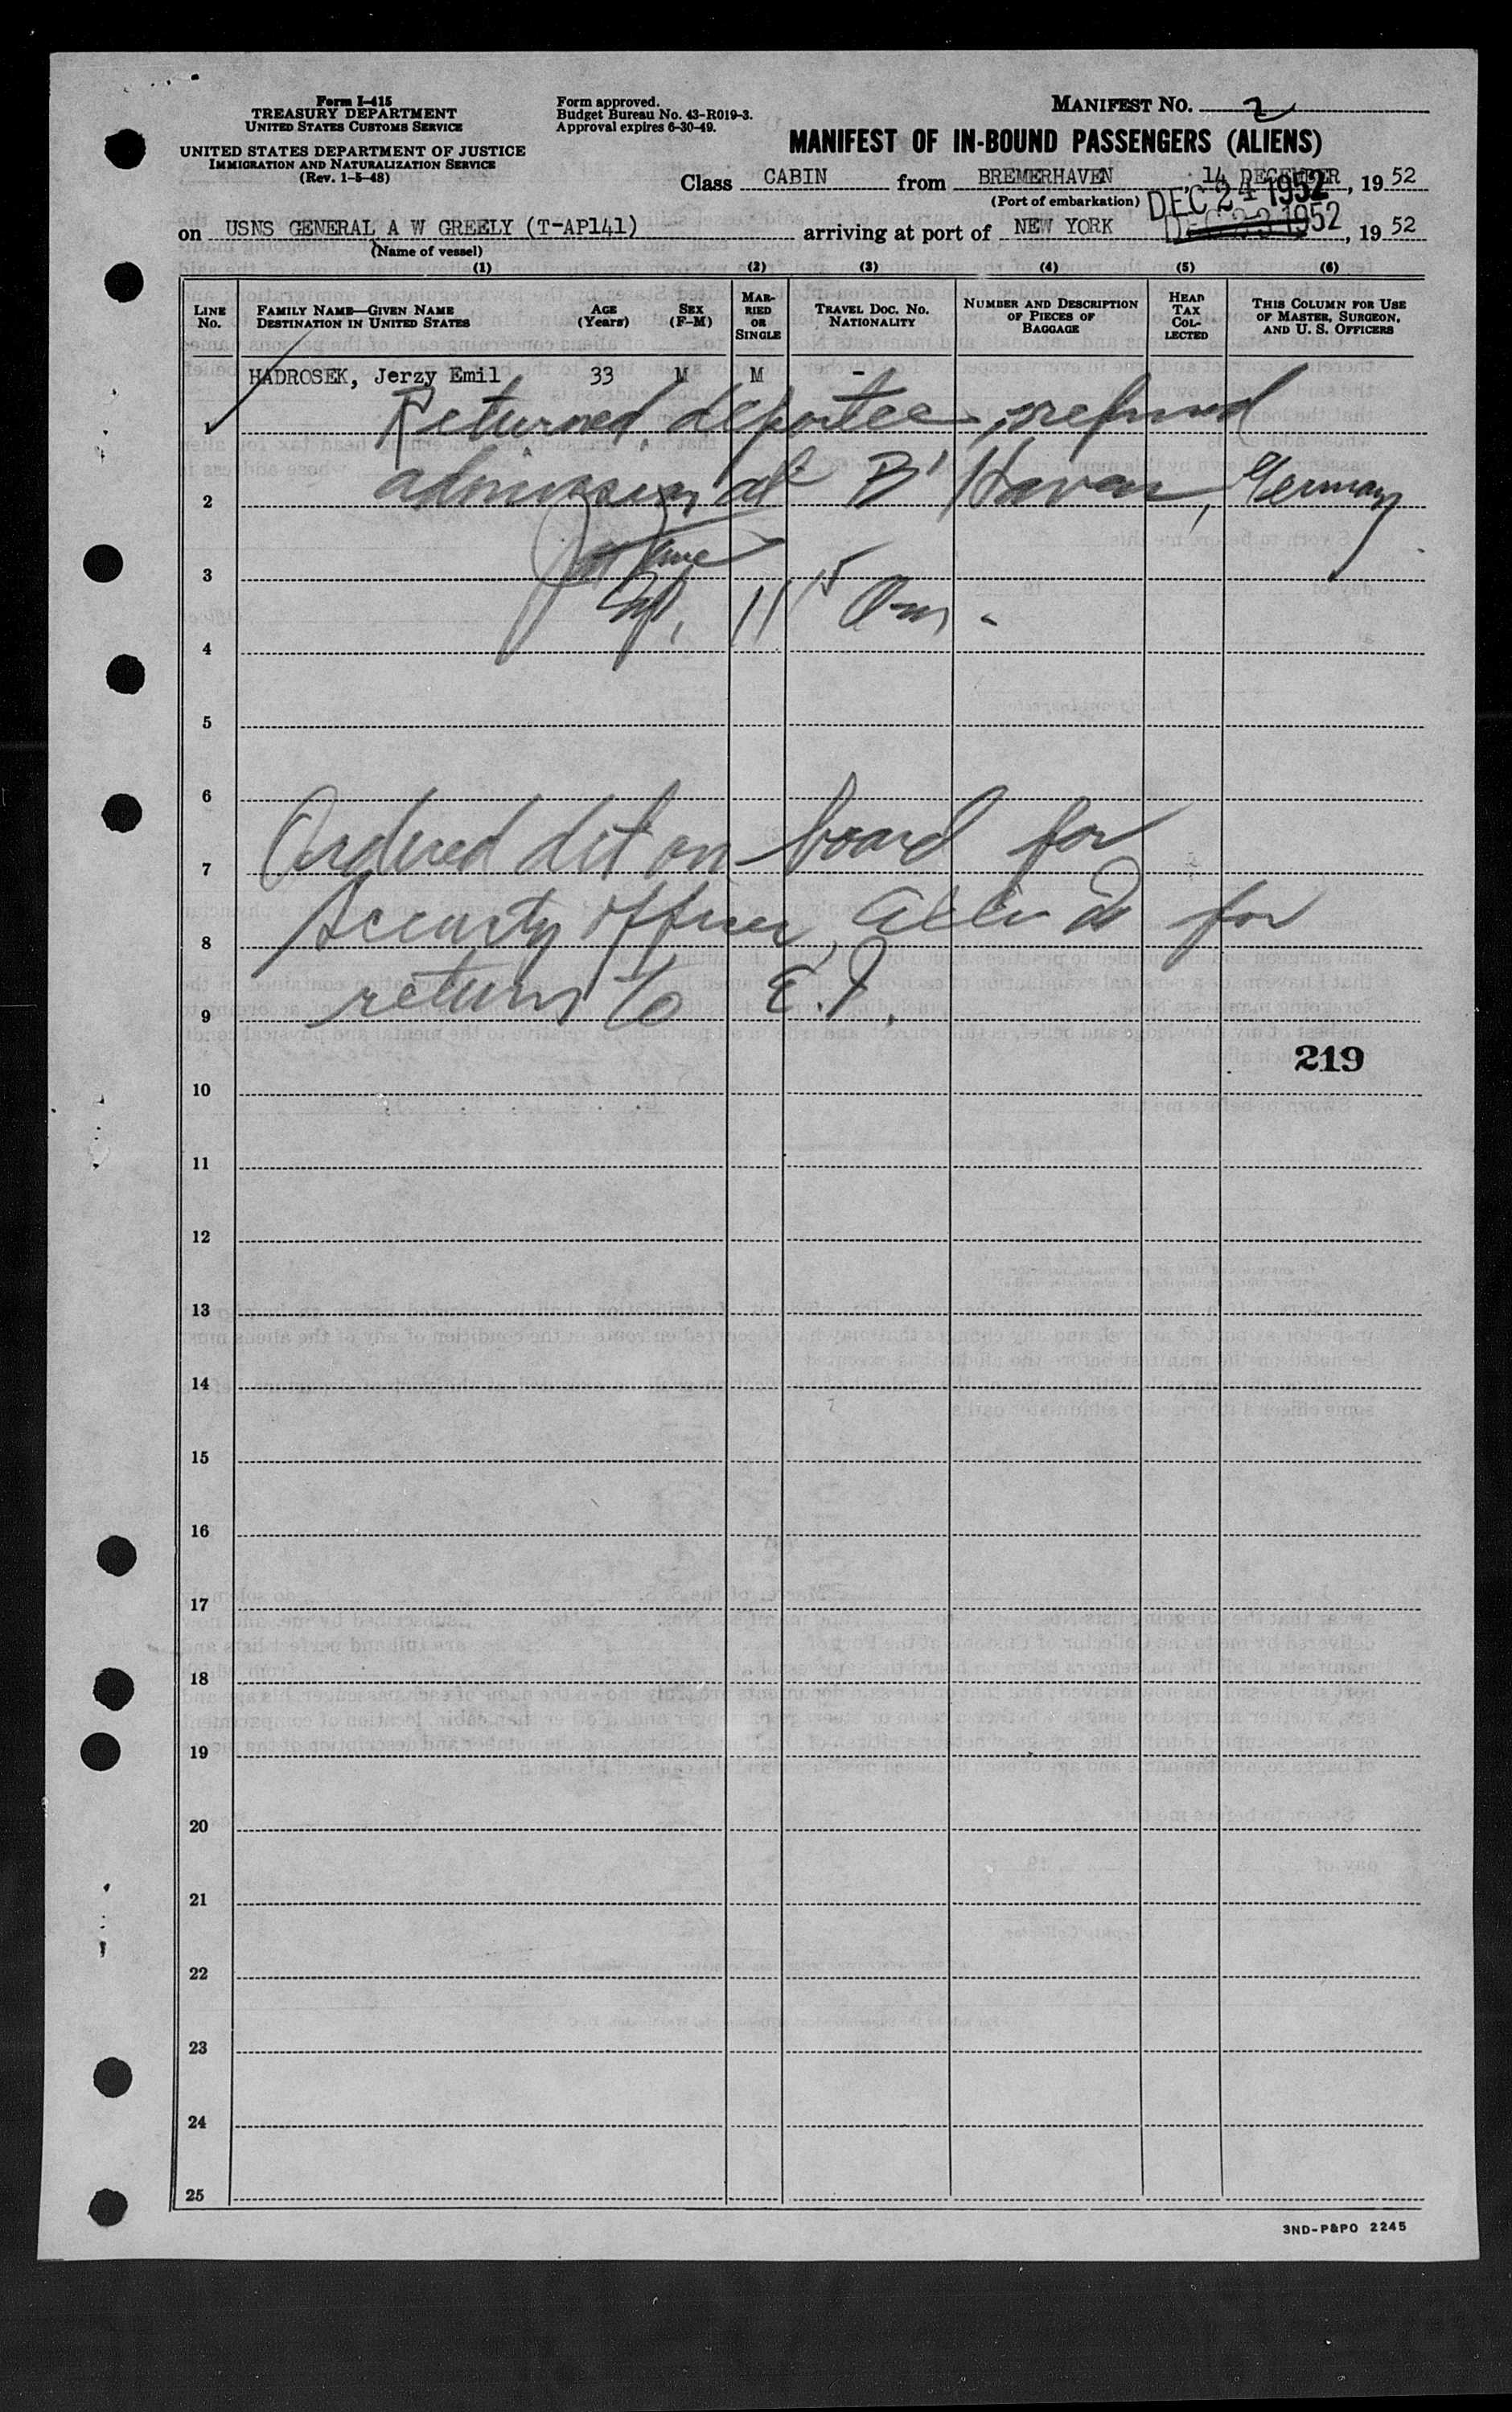 Form I-415
TREASURY DEPARTMENT
UNITED STATES CUSTOMS SERVICE
UNITED STATES DEPARTMENT OF JUSTICE
IMMIGRATION AND NATURALIZATION SERVICE
(Rev. 1-5-48)
Form approved.
Budget Bureau No. 43-R019-3.
Approval expires 6-30-49.
MANIFEST NO. 2
MANIFEST OF IN-BOUND PASSENGERS (ALIENS)
Class CABIN from BREMERHAVEN, 14 DECEMBER, 19 52
(Port of embarkation)
DEC 24 1952
on USNS GENERAL A W GREELY (T-AP141) arriving at port of NEW YORK DEC 23 1952, 19 52
(Name of vessel)
(1) (2) (3) (4) (5) (6)
LINE No.
FAMILY NAME—GIVEN NAME
DESTINATION IN UNITED STATES
AGE (Years)
SEX (F-M)
MARRIED OR SINGLE
TRAVEL DOC. NO. NATIONALITY
NUMBER AND DESCRIPTION OF PIECES OF BAGGAGE
HEAD TAX COLLECTED
THIS COLUMN FOR USE OF MASTER, SURGEON, AND U. S. OFFICERS
HADROSEK, Jerzy Emil 33 M M -
1 Returned deportee, refused
2 admission at B'Haven, Germany
3
4 Insp. 11 15 am.
5
6
7 Ordered det on board for
8 Security Officer, for
9 return to E.I.
219
10
11
12
13
14
15
16
17
18
19
20
21
22
23
24
25
3ND-P&PO 2245